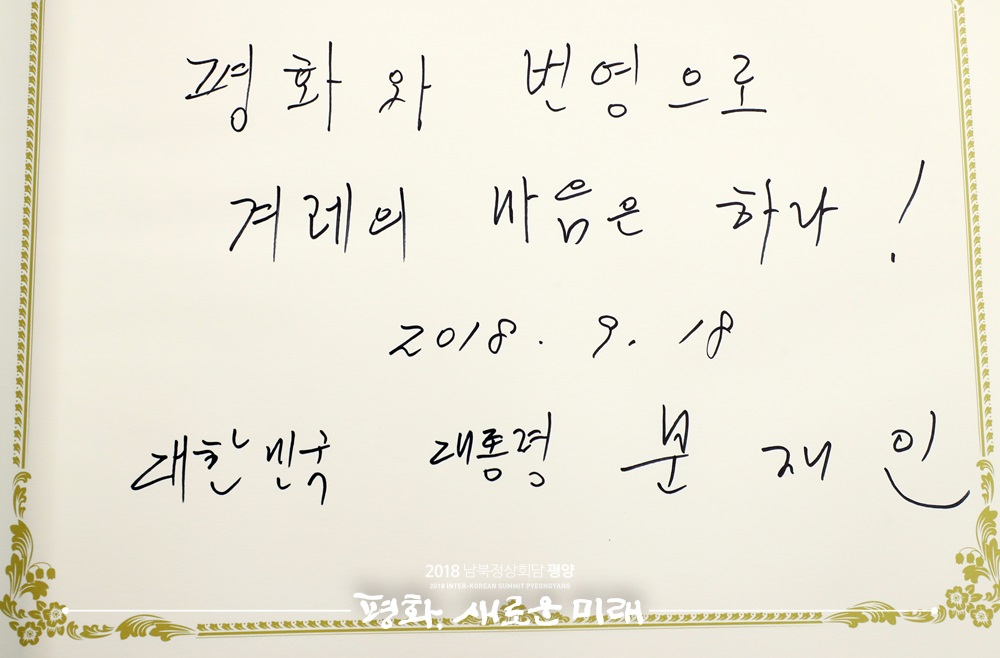 평화와 번영으로
겨레의 마음은 하나!
2018. 9. 18
대한민국 대통령 문재인
2018 남북정상회담 평양
2018 INTER-KOREAN SUMMIT PYEONGYANG
평화, 새로운 미래